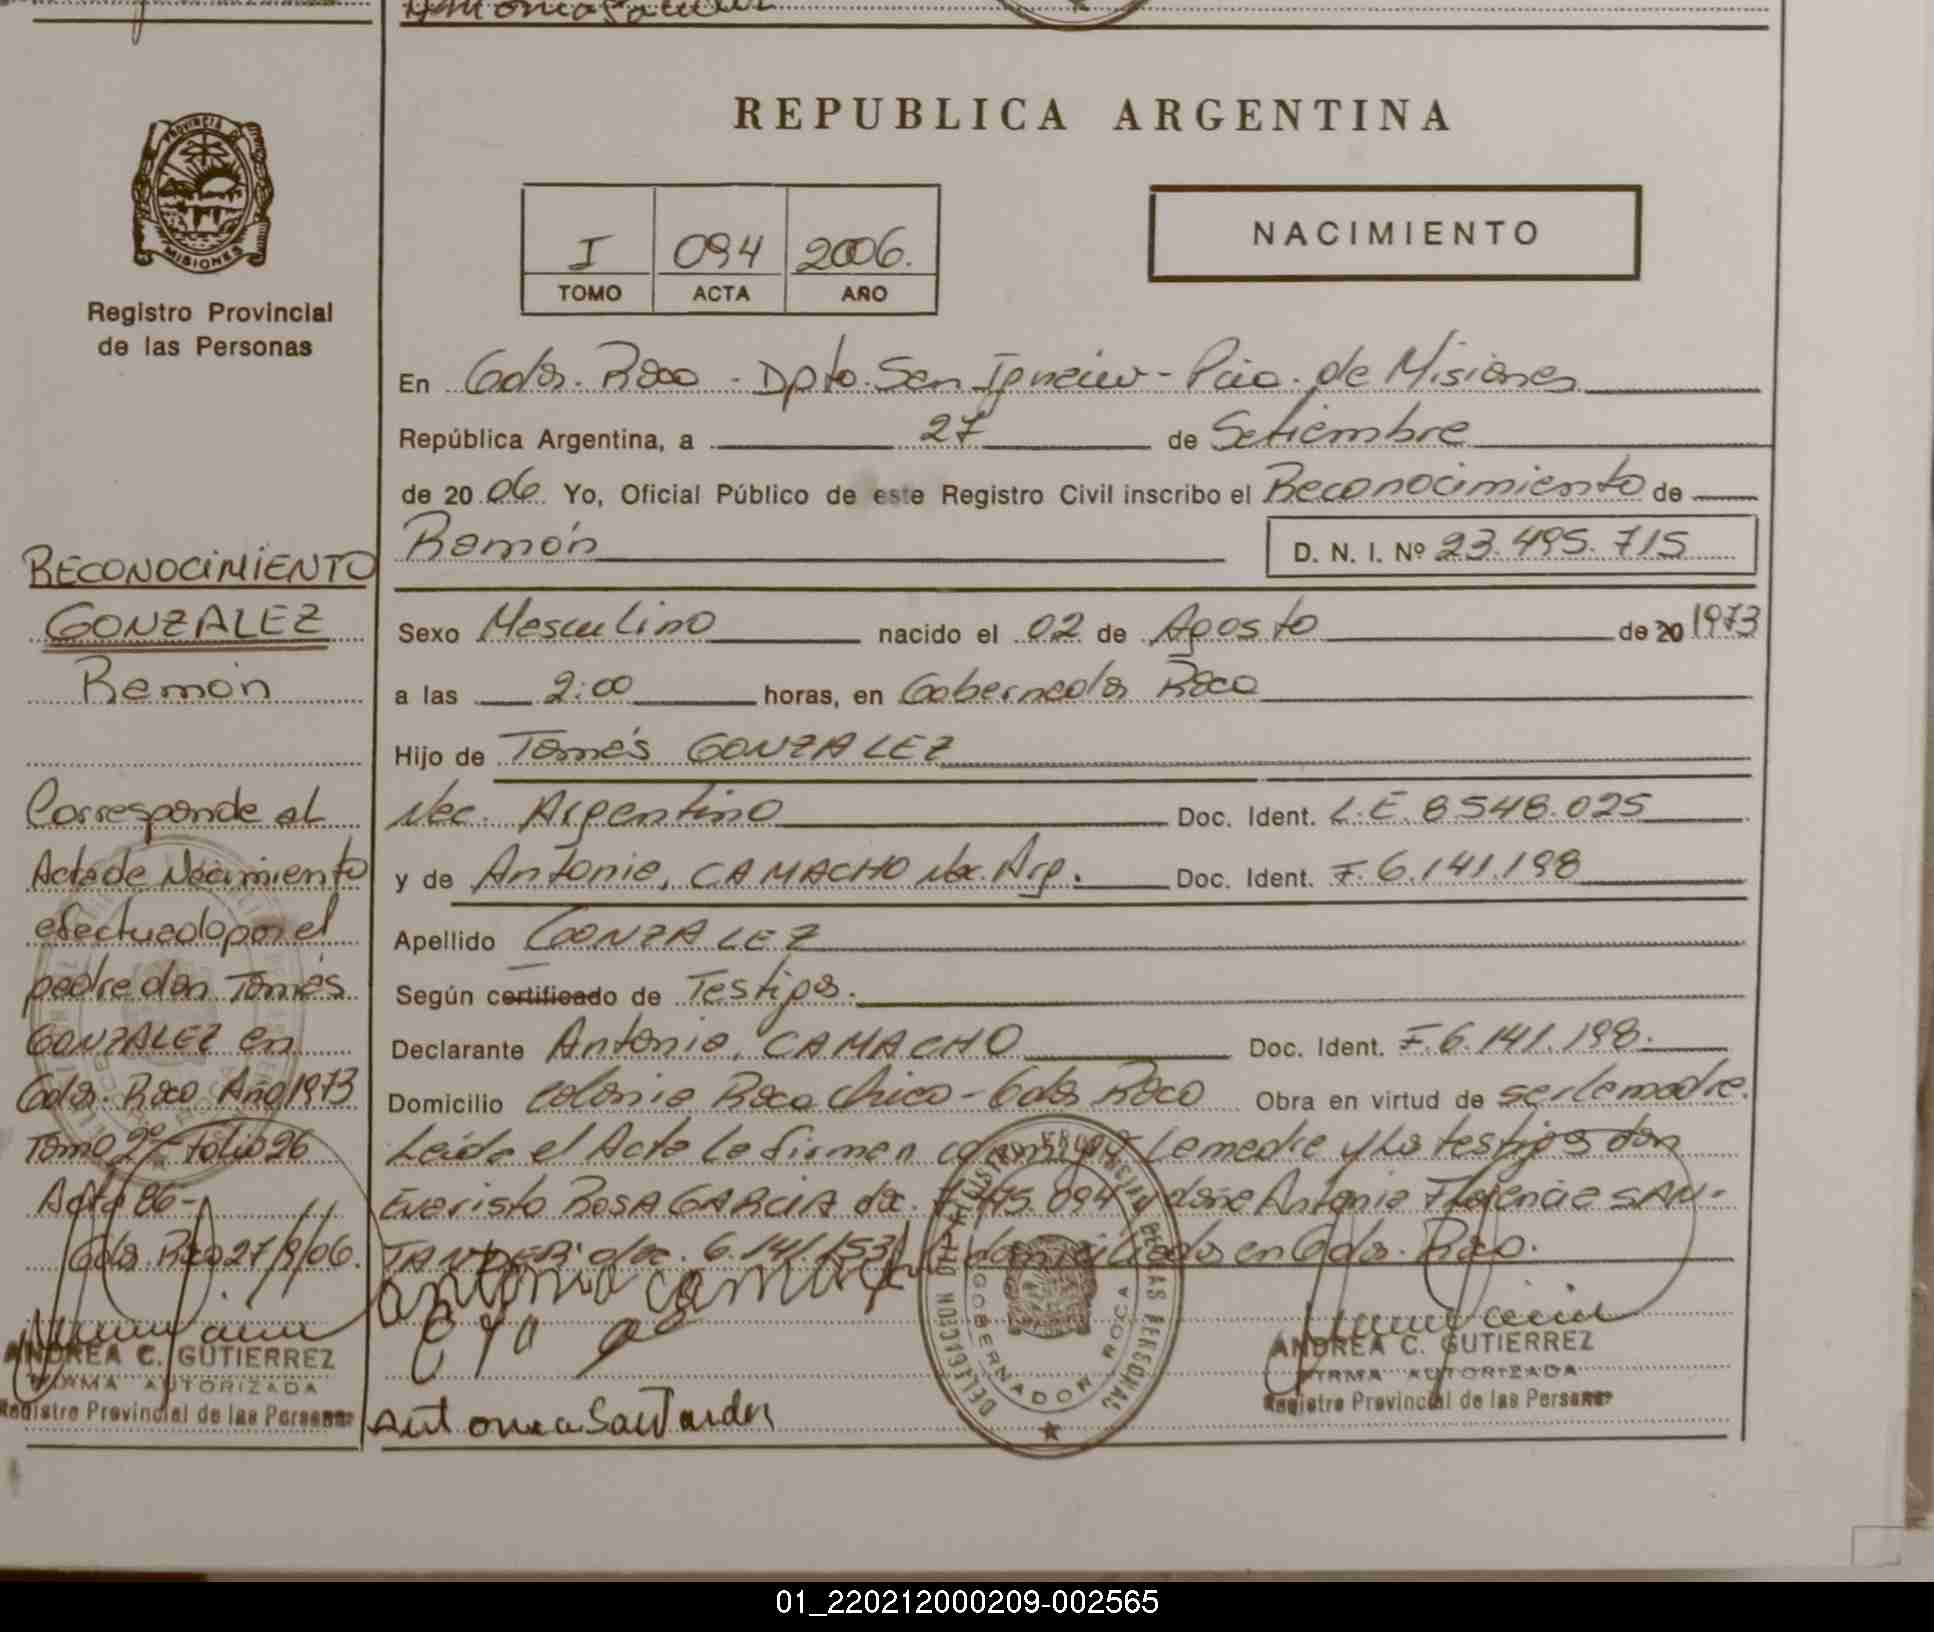 PROVINCIA DE
MISIONES
Registro Provincial
de las Personas
RECONOCIMIENTO
GONZALEZ
Ramón
Corresponde al
Acta de Nacimiento
efectuado por el
padre don Tomás
GONZALEZ en
Gdor. Roca Año 1973
Tomo 2º - Folio 26
Acta 86 -
Gdor. Roca 27/9/06.
ANDREA C. GUTIERREZ
FIRMA AUTORIZADA
Registro Provincial de las Personas
REPUBLICA ARGENTINA
I 094 2006.
TOMO ACTA AÑO
NACIMIENTO
En Gdor. Roca - Dpto. San Ignacio - Pcia. de Misiones
República Argentina, a 27 de Setiembre
de 20 06 Yo, Oficial Público de este Registro Civil inscribo el Reconocimiento de
Ramón D. N. I. Nº 23.495.715
Sexo Masculino nacido el 02 de Agosto de 20 1973
a las 2:00 horas, en Gobernador Roca
Hijo de Tomás GONZALEZ
Nac. Argentino Doc. Ident. L.E. 8548.025
y de Antonia, CAMACHO Nac. Arg. Doc. Ident. F. 6.141.198
Apellido GONZALEZ
Según certificado de Testigos.
Declarante Antonia, CAMACHO Doc. Ident. F. 6.141.198.
Domicilio Colonia Roca Chico - Gdor Roca Obra en virtud de ser la madre.
Leída el Acta la firman conmigo la madre y los testigos don
Evaristo ROSA GARCIA doc. 7.475.094 y doña Antonia Florencia SAN-
TANDER doc. 6.141.153 domiciliados en Gdor. Roca.
antonia camacho
Antonia Santander
DELEGACION
DE LAS PERSONAS
GOBERNADOR ROCA
ANDREA C. GUTIERREZ
FIRMA AUTORIZADA
Registro Provincial de las Personas
01_220212000209-002565